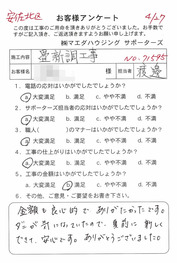 安佐北区
お客様アンケート
4/27
この度は工事のご用命を頂きありがとうございました。お手数で
すがご記入頂き、ご返送頂きますようお願い申し上げます。
㈱マエダハウジング サポーターズ
施工内容
NO.71595
お客様名
様
担当者
渡邊
1．電話の応対はいかがでしたか？
a 大変満足 b. 満足 c. やや不満 d. 不満
2．サポーターズ担当者の応対はいかがでしたか？
a 大変満足 b. 満足 c. やや不満 d. 不満
3．職人（ ）のマナーはいかがでしたか？
a 大変満足 b. 満足 c. やや不満 d. 不満
4．工事の仕上がりはいかがでしたか？
a. 大変満足 b 満足 c. やや不満 d. 不満
5．工事の価格はいかがでしたか？
a 大変満足 b. 満足 c. やや不満 d. 不満
6．その他、ご意見、ご要望をお書き下さい。
金額も良心的で ありがたかったです。
きて、安心です。ありがとうございました。